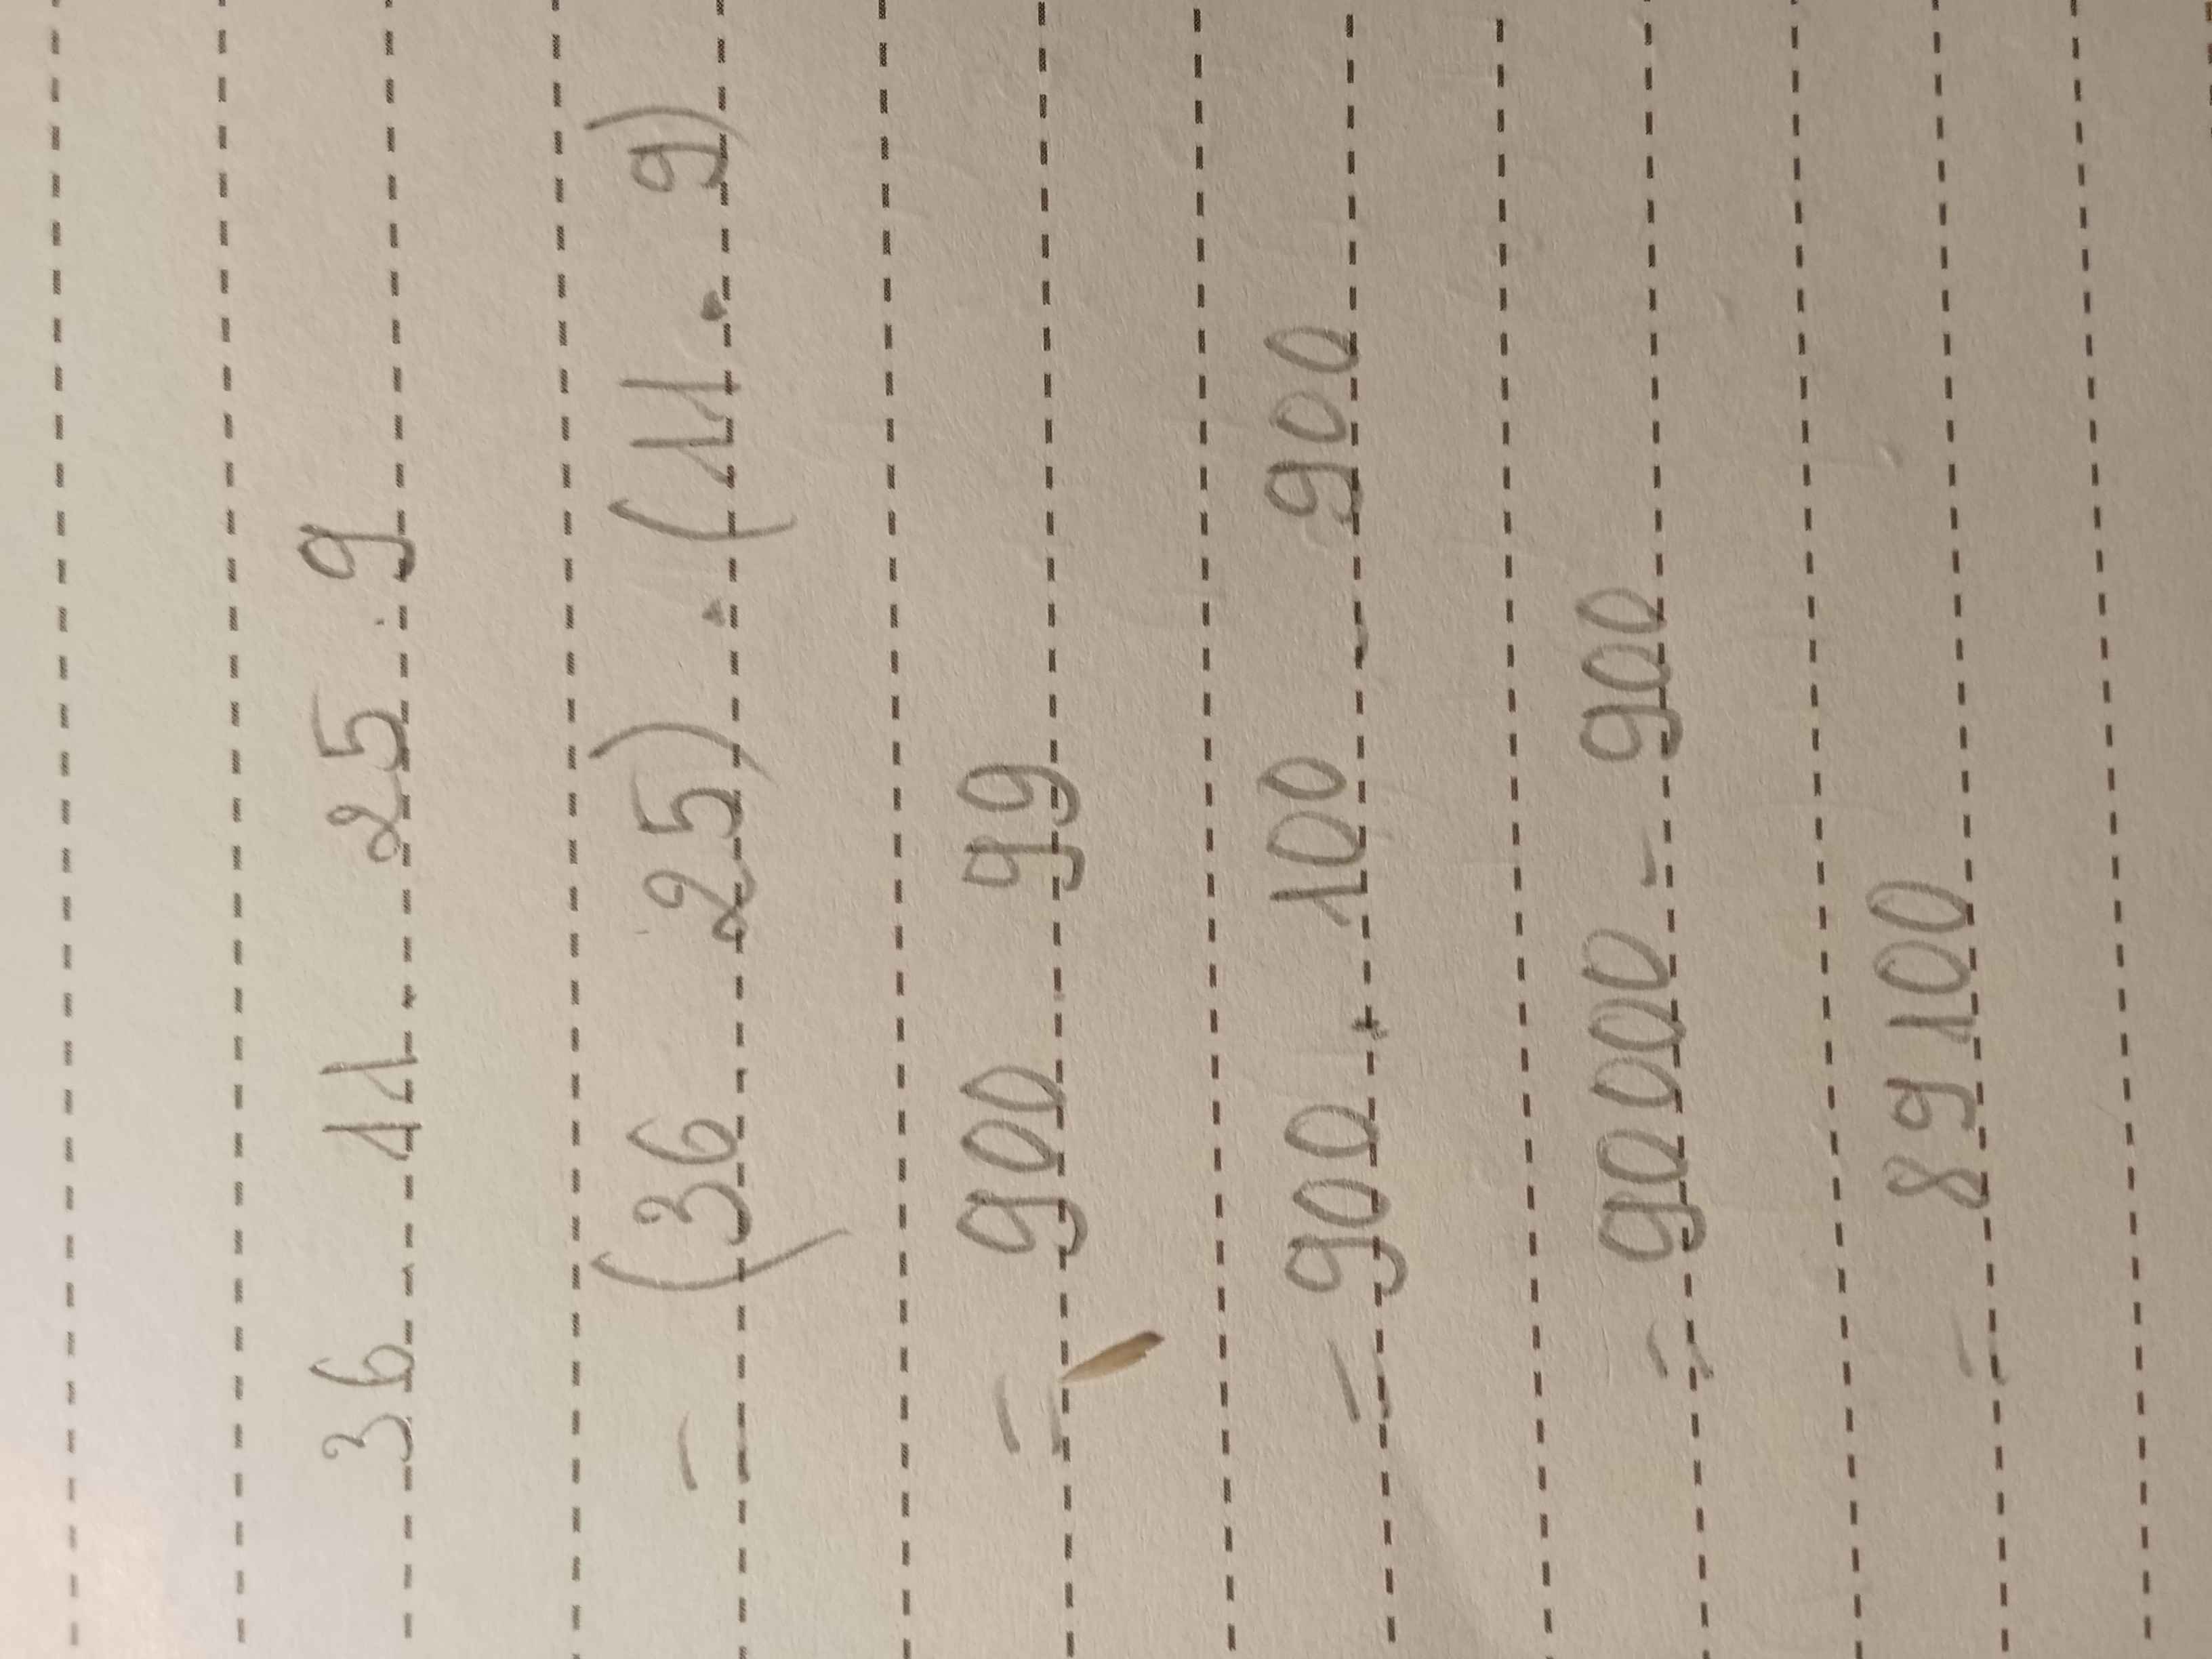 36 · 11 · 25 · 9
= (36 · 25) · (11 · 9)
= 900 · 99
= 900 · 100 - 900
= 90000 - 900
= 89100